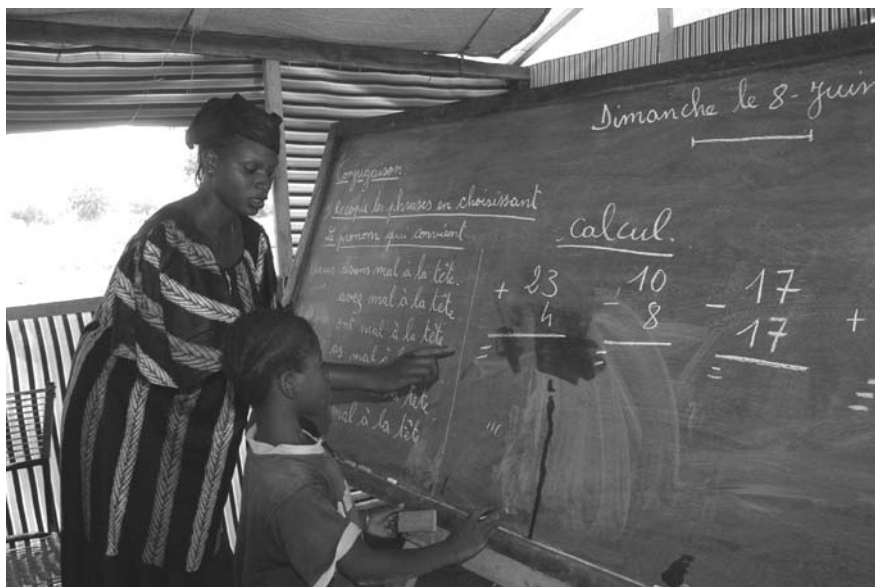 Dimanche le 8-Juin
Conjugaison:
Recopie les phrases en choisissant
le pronom qui convient
avons mal à la tête.
avez mal à la tête
ont mal à la tête
as mal à
à la tête
mal à la tête
calcul.
+ 23
4
=
- 10
8
=
- 17
17
=
+
=